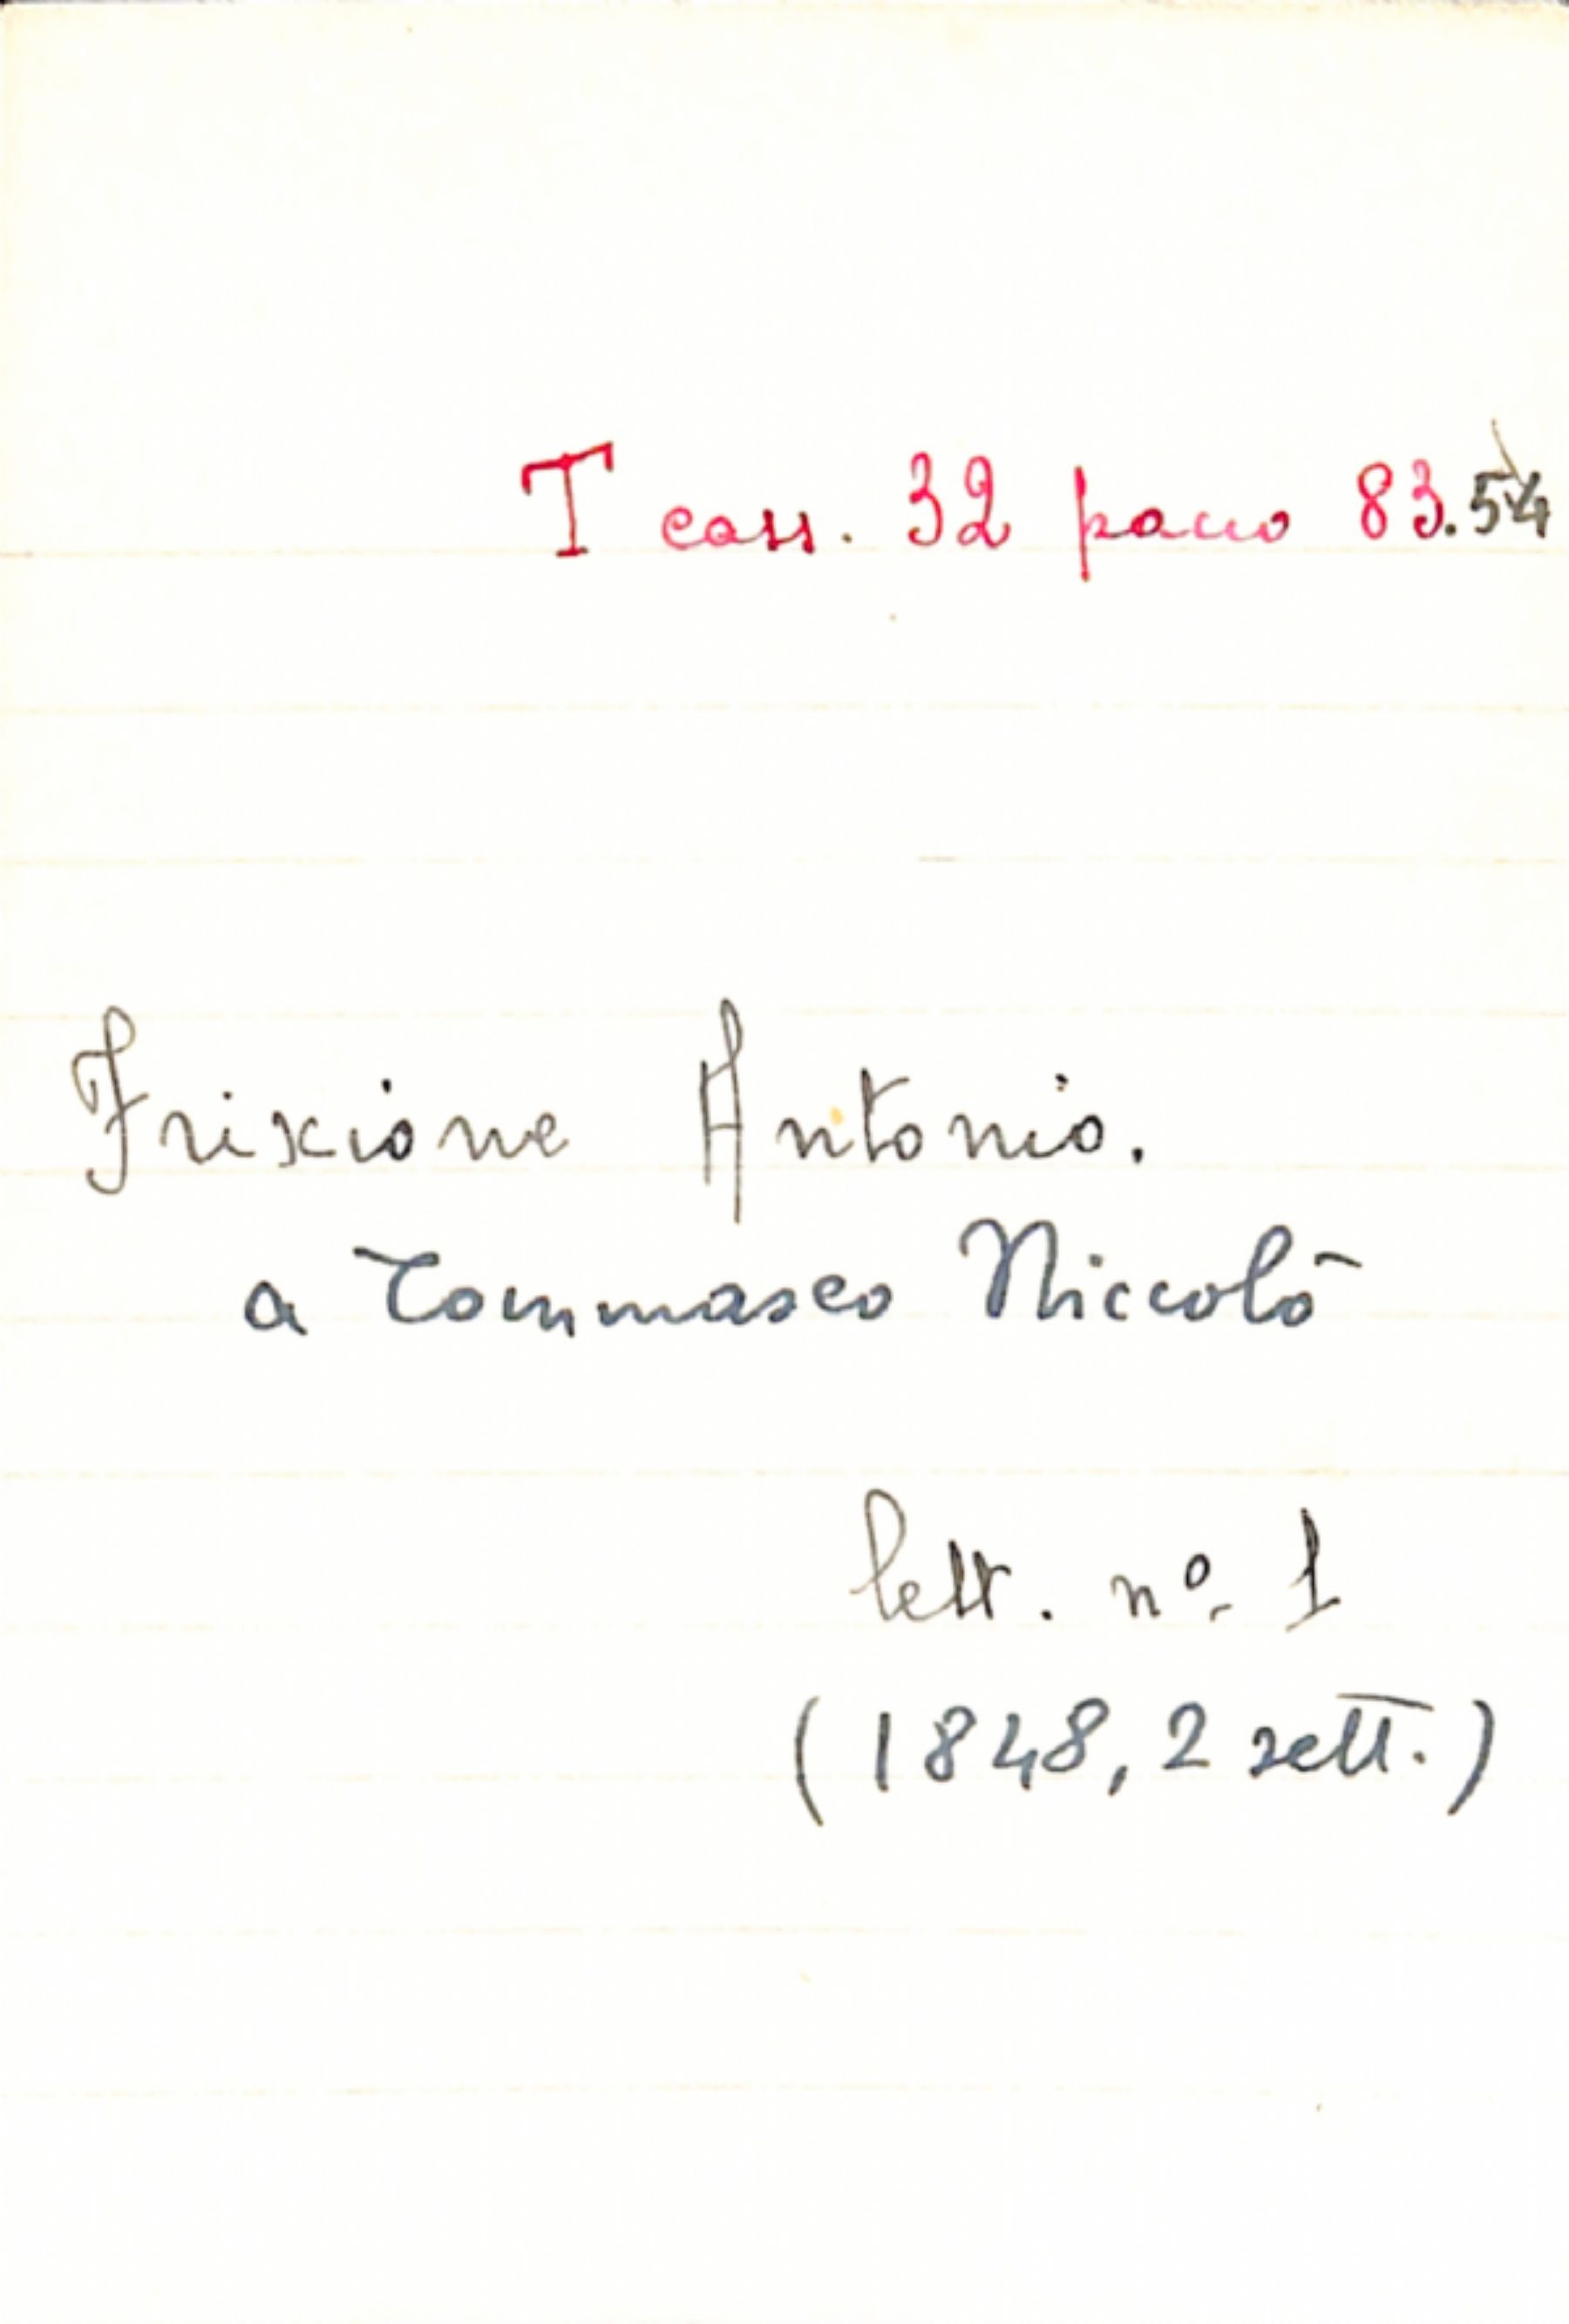 T cass. 32 pacco 83.54
Frixione Antonio.
a Tommaseo Niccolò
lett. nº 1
(1848, 2 sett.)